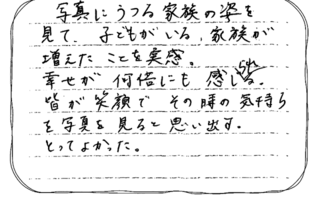 写真にうつる家族の姿を
見て、子どもがいる、家族が
増えたことを実感。
幸せが何倍にも感じられる。
皆が笑顔でその時の気持ち
を写真を見ると思い出す。
とってよかった。